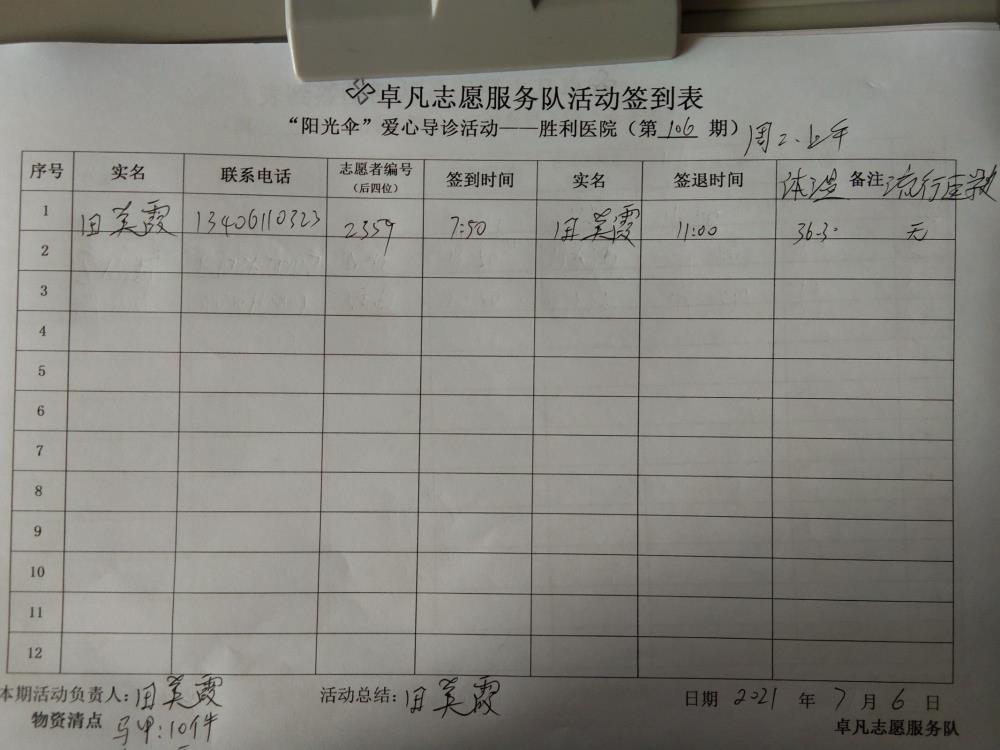 卓凡志愿服务队活动签到表
“阳光伞”爱心导诊活动——胜利医院（第 106 期）周二.上午
序号 实名 联系电话 志愿者编号（后四位） 签到时间 实名 签退时间 体温 备注 流行
1 田英霞 13406110323 2359 7:50 田英霞 11:00 36.3. 无
2
3
4
5
6
7
8
9
10
11
12
本期活动负责人：田英霞 活动总结：田英霞 日期 2021 年 7 月 6 日
物资清点 马甲：10件 卓凡志愿服务队